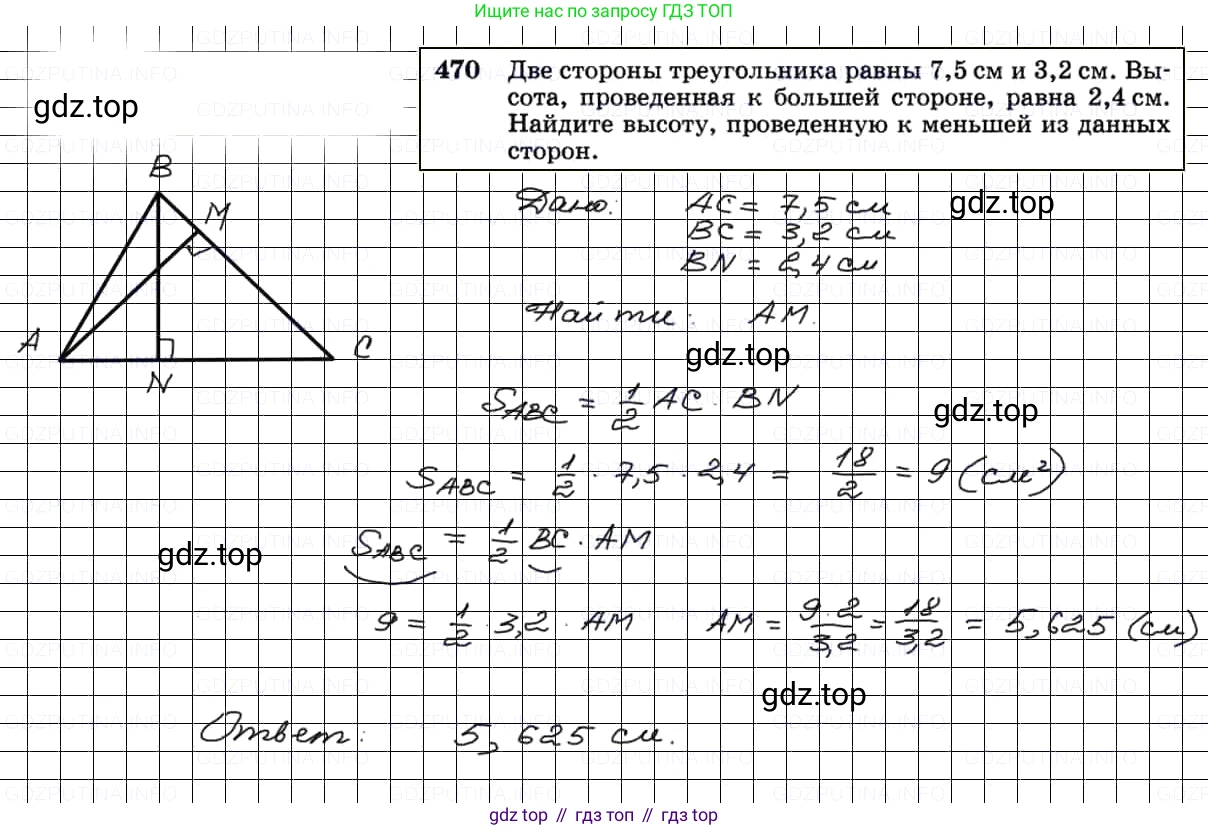 Ищите нас по запросу ГДЗ ТОП
470 Две стороны треугольника равны 7,5 см и 3,2 см. Вы-
сота, проведенная к большей стороне, равна 2,4 см.
Найдите высоту, проведенную к меньшей из данных
сторон.
gdz.top
B
M
A
C
N
Дано: AC = 7,5 см
gdz.top
BC = 3,2 см
BN = 2,4 см
Найти: AM.
gdz.top
S_ABC = 1/2 AC · BN
gdz.top
S_ABC = 1/2 · 7,5 · 2,4 = 18/2 = 9 (см²)
gdz.top
S_ABC = 1/2 BC · AM
9 = 1/2 · 3,2 · AM AM = 9·2/3,2 = 18/3,2 = 5,625 (см)
gdz.top
Ответ: 5,625 см.
gdz top // гдз топ // гдз top
GDZPUTINA.INFO